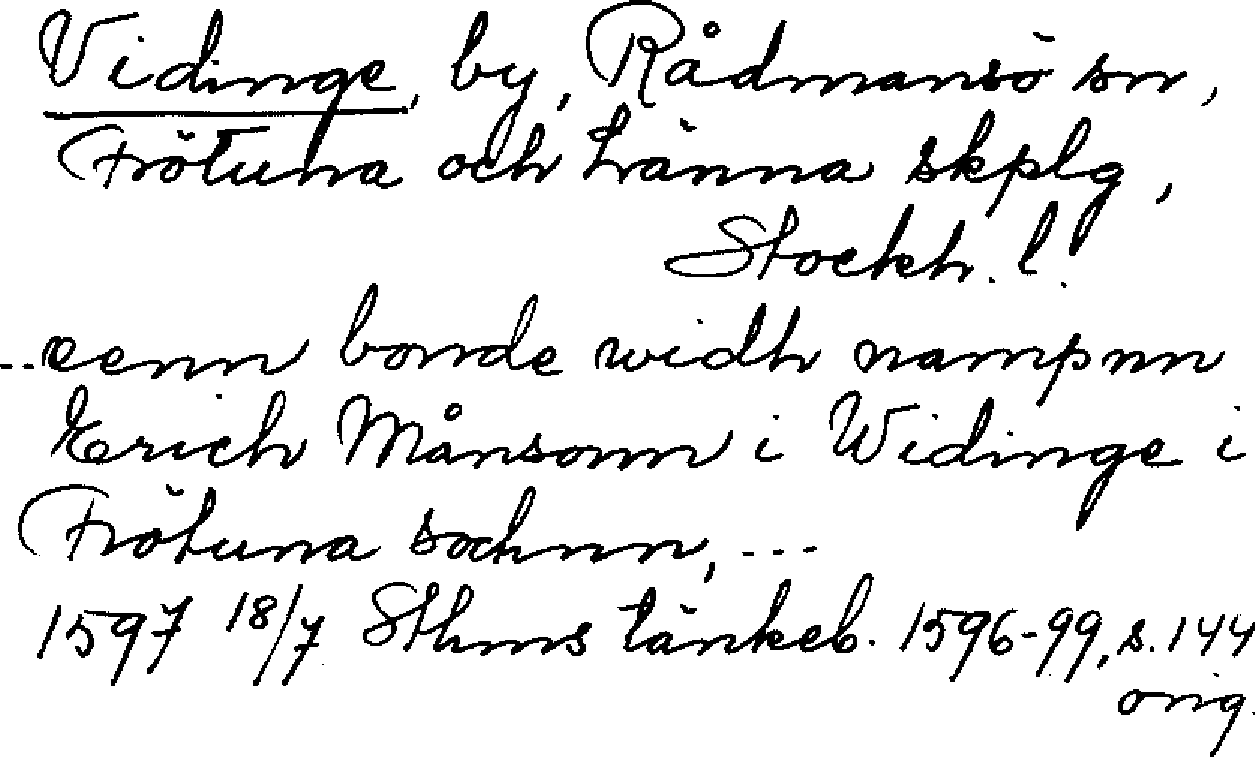 Vidinge, by, Rådmansö sn,
Frötuna och Länna skplg,
Stockh. l.
...eenn bonde widh nampnn
Erich Månsonn i Widinge i
Frötuna sochnn, ---
1597 18/7 Sthms tänkeb. 1596-99, s. 144
orig.